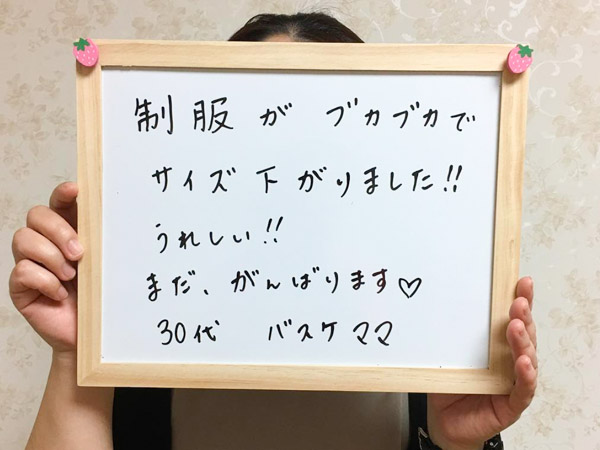 制服が ブカブカで
サイズ下がりました!!
うれしい!!
まだ、がんばります♡
30代 バスケママ